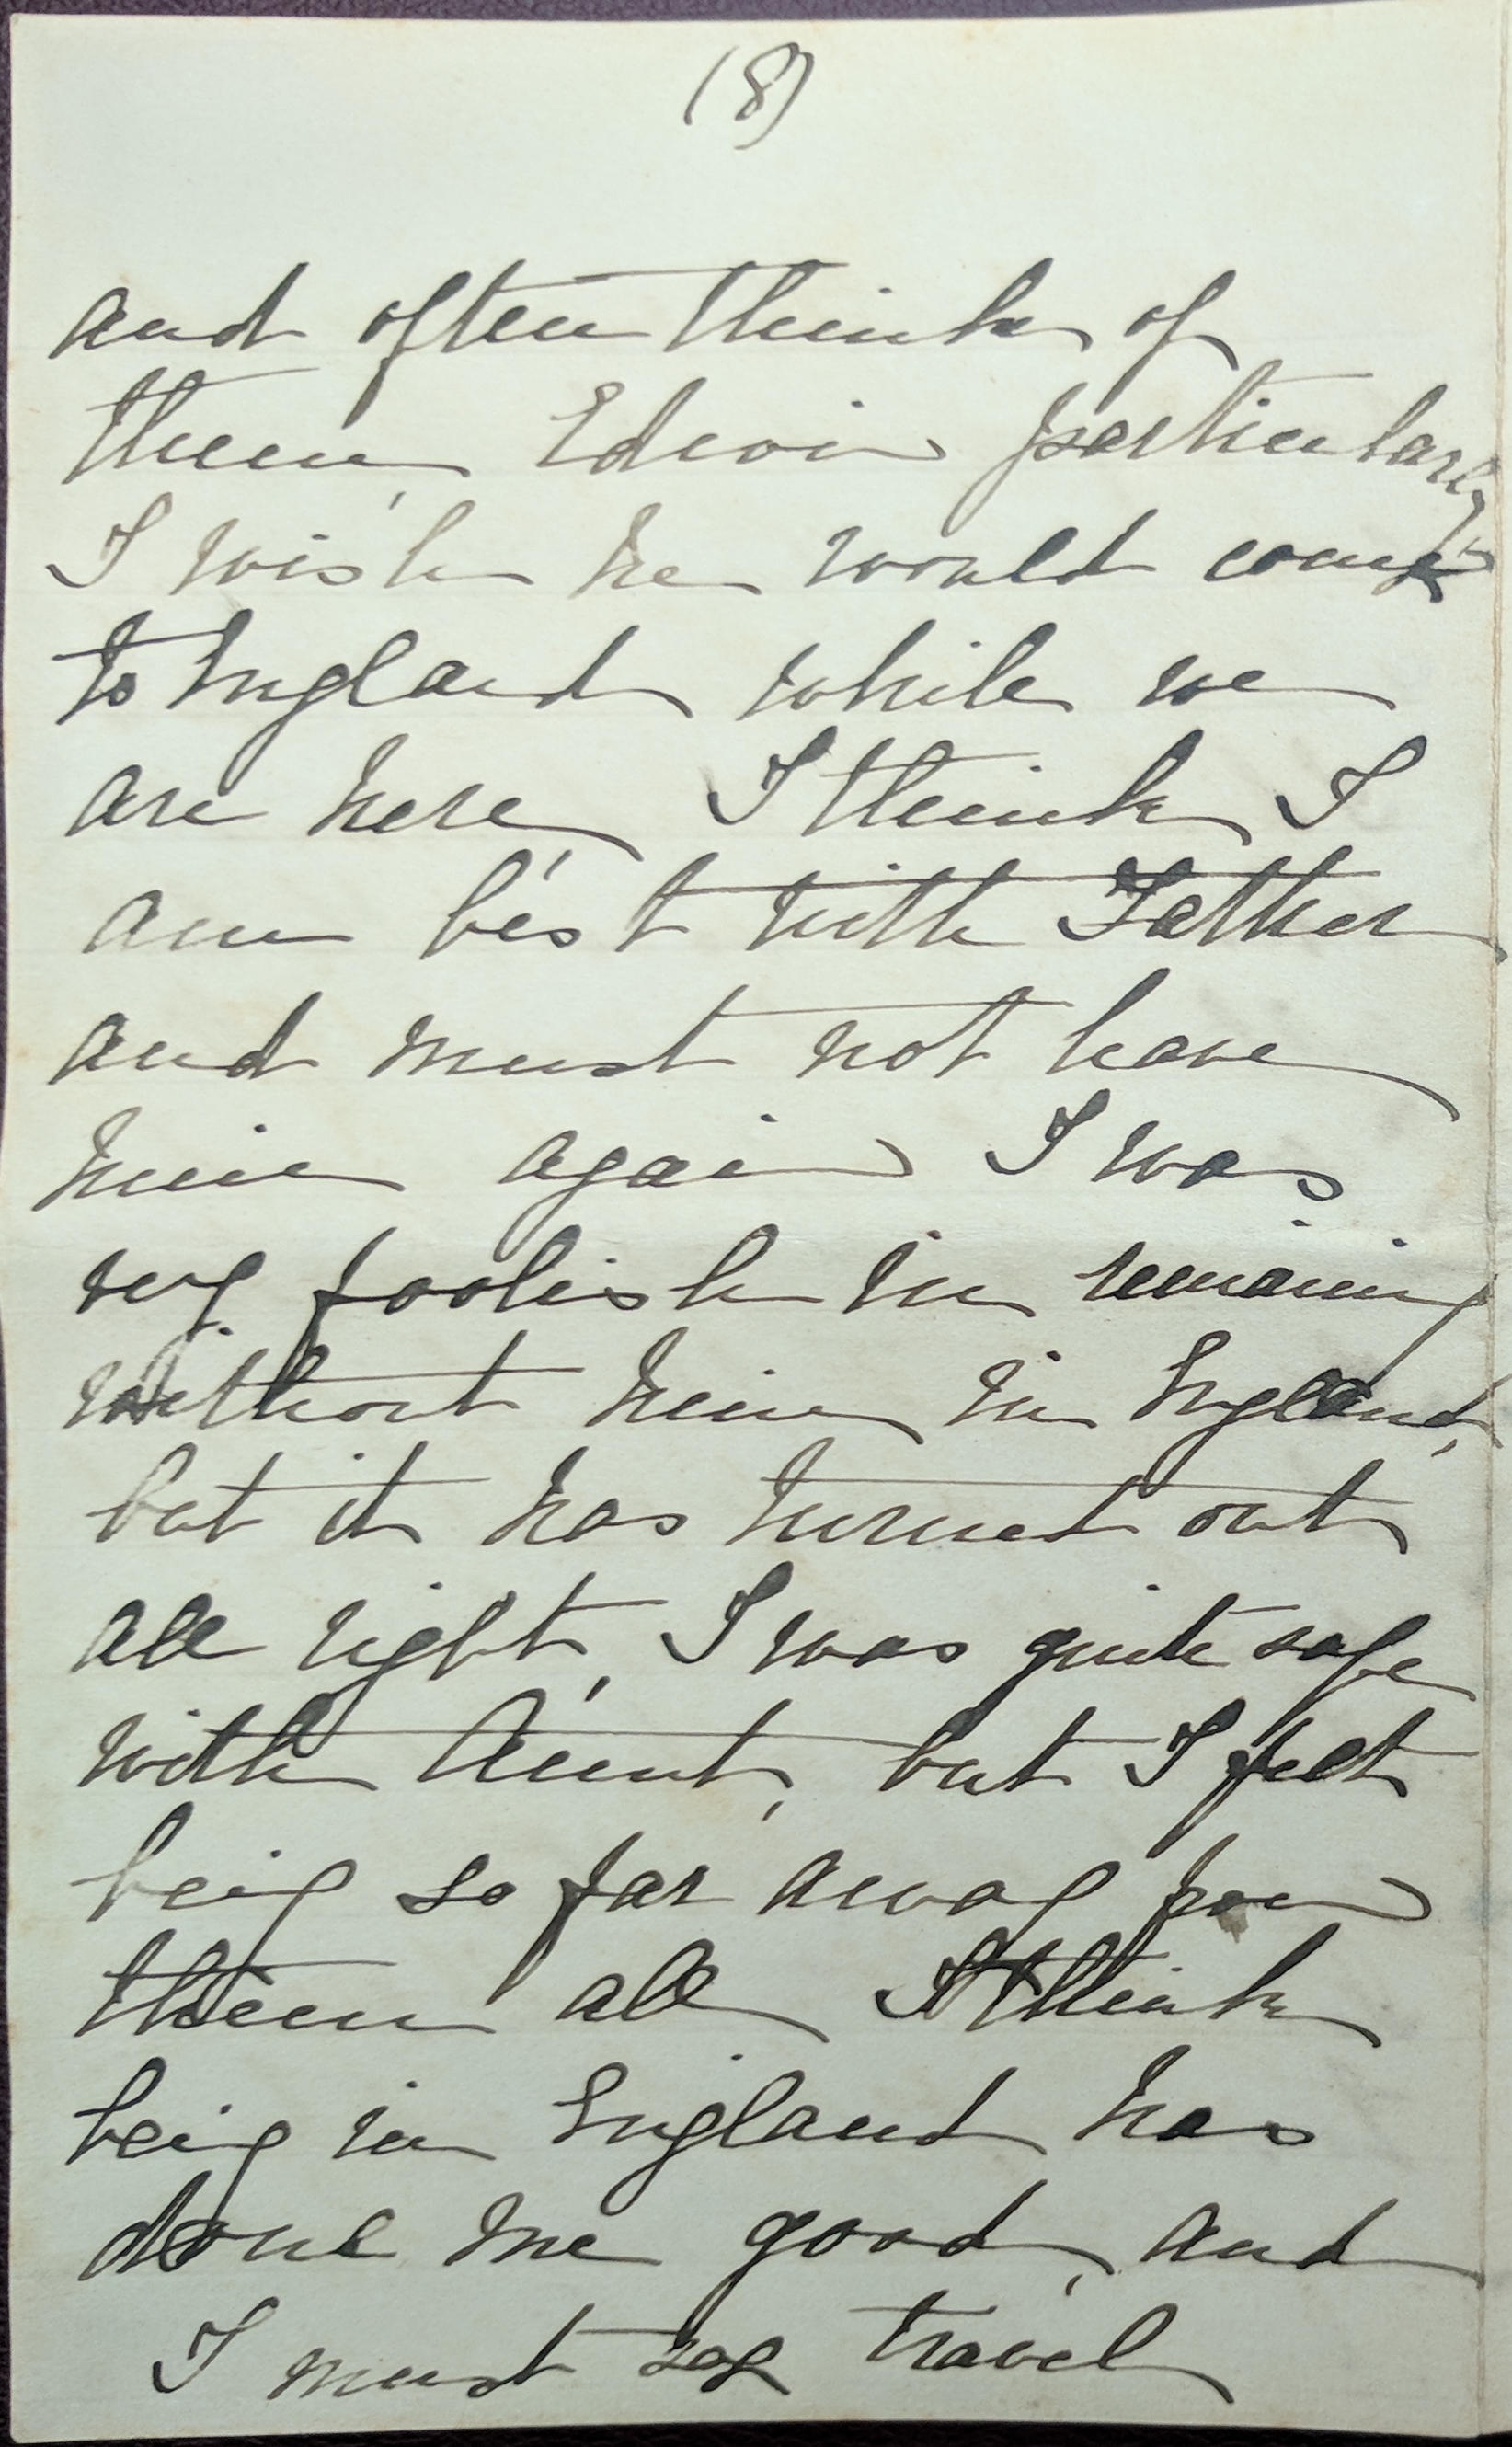 (8)
and often think of
them, Edwin particularly
I wish he would come
to England while we
are here, I think I
am best with Father
and must not leave
him again I was
very foolish in remaining
without him in England,
but it has turned out
all right, I was quite safe
with Aunt, but I felt
being so far away from
them all I think
being in England has
done me good, and
I must say travel